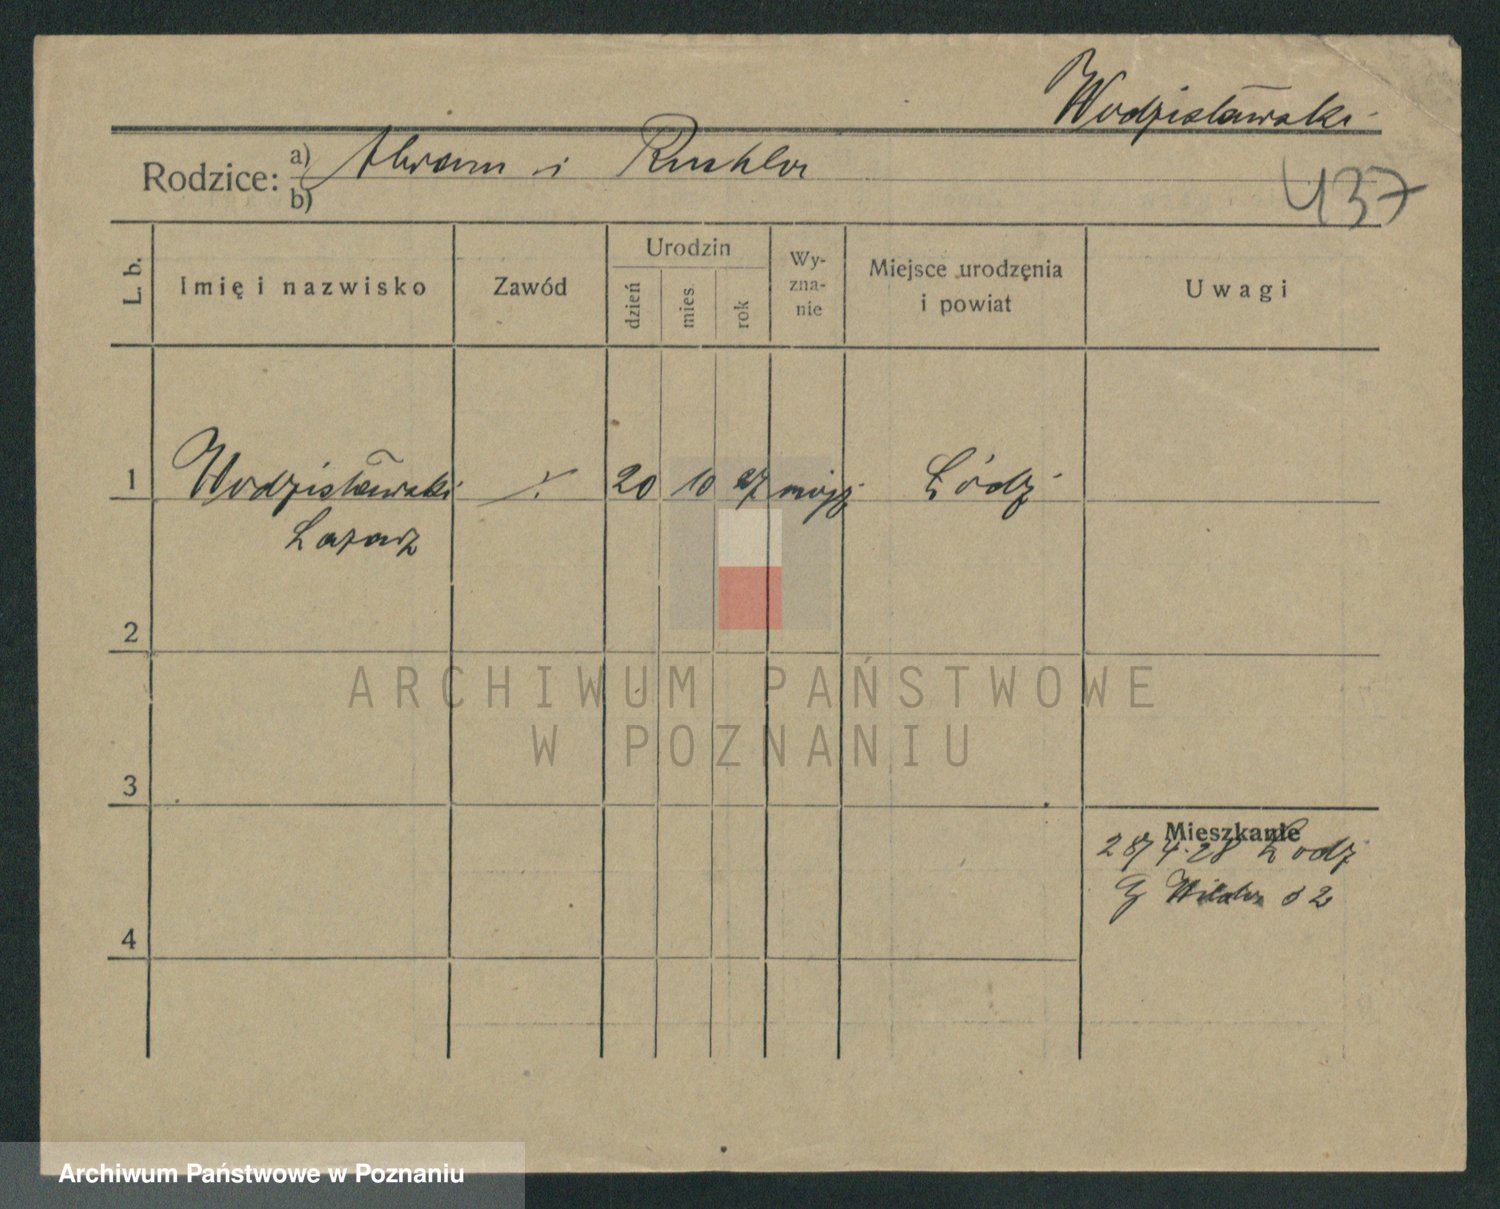 Wodzisławski
437
Rodzice: a) Abram i Ruchla
b)
L. b.
Imię i nazwisko
Zawód
Urodzin
dzień
mies.
rok
Wy-
zna-
nie
Miejsce urodzęnia
i powiat
Uwagi
1 Wodzisławski ·/. 20 10 27 mojż Łódź
Lazarz
2
3
4
Mieszkanie
28/4.28 Łodz
ARCHIWUM PAŃSTWOWE
W POZNANIU
Archiwum Państwowe w Poznaniu